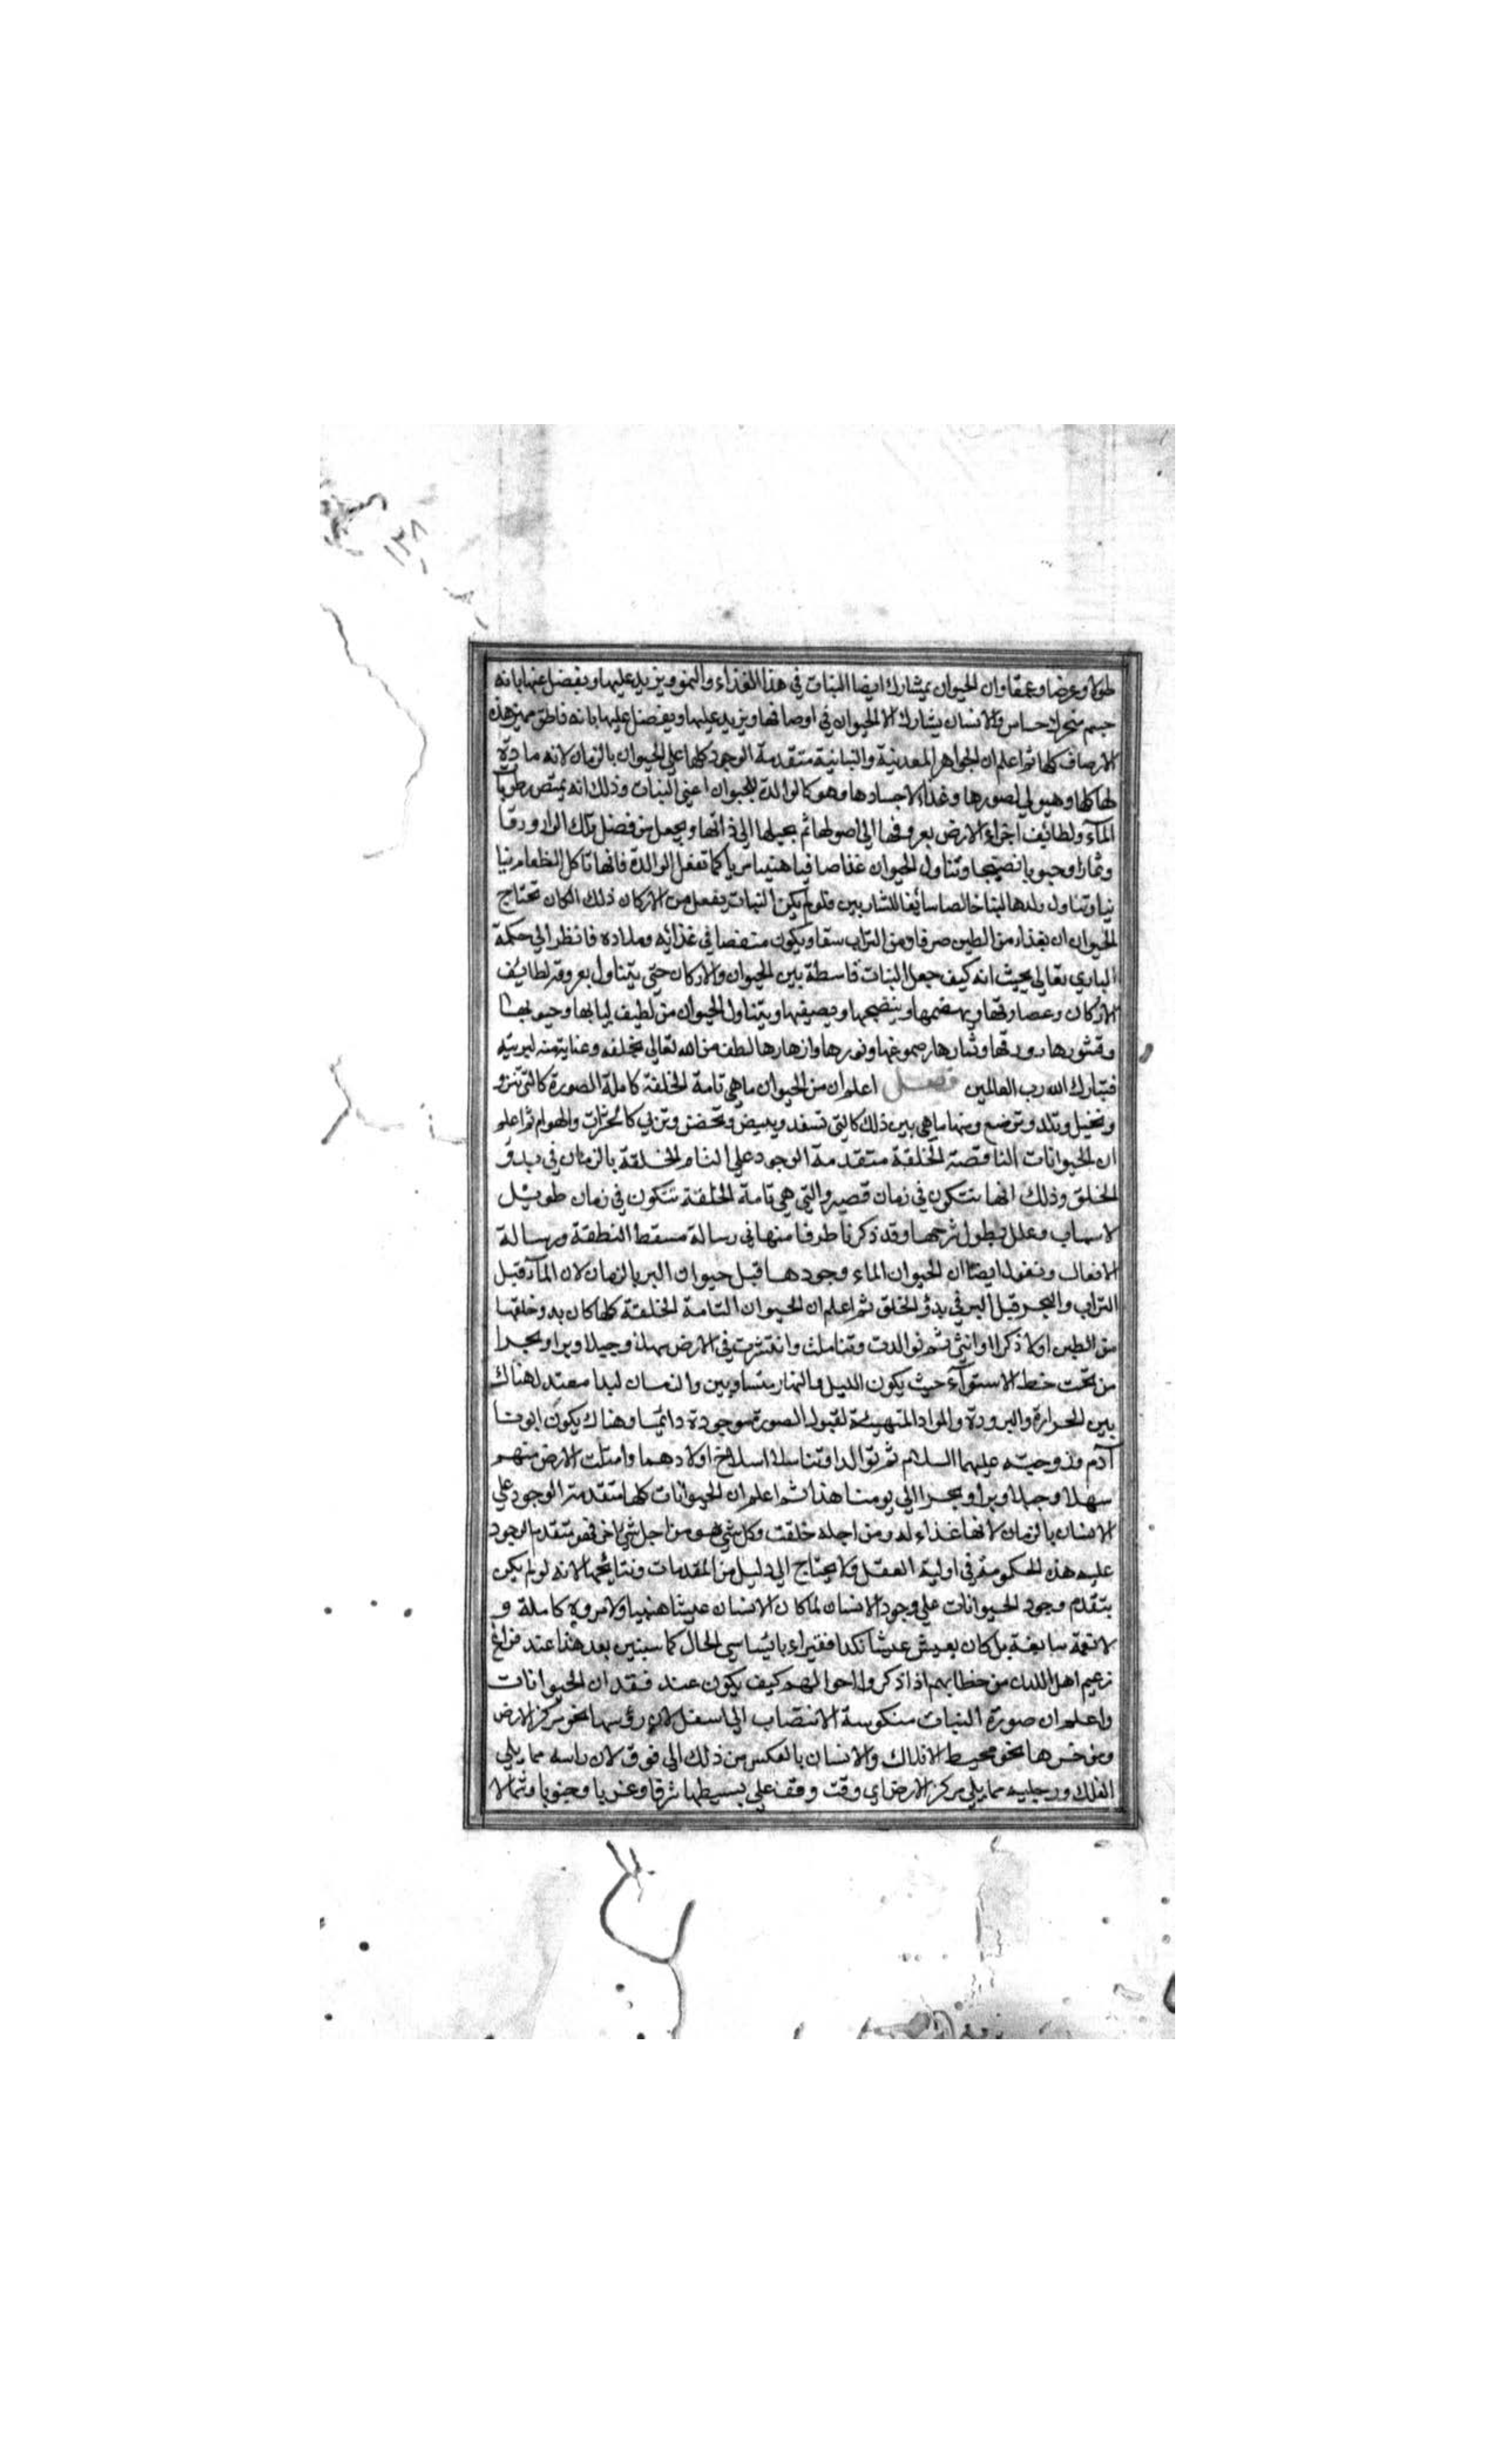 ١٣٨
طولا وعرضا وعمقا وان الحيوان يشارك ايضا النبات في هذا الغذاء والنمو ويزيد عليها ويفضل عنها بانه
جسم متحرك حساس والانسان يشارك الالحيوان في اوصافها ويزيد عليها ويفضل عليها بانه ناطق مميز هذه
الاوصاف كلها ثم اعلم ان الجواهر المعدنية والنباتية متقدمة الوجود كلها على الحيوان بالزمان لانه مادة
لها كلها وهيولي لصورها وغذاء لاجسادها وهو كالوالدة للحيوان اعني النبات وذلك انه يمتص رطوبات
المآء ولطائف اجزاء الارض بعروقها الى اصولها ثم يحيلها الى ذاتها ويجعل من فضل تلك المواد ورقا
وثمارا وحبوبا نضيجا وتناول الحيوان غذا صافيا هنيا مريا كما تفعل الوالدة فانها تاكل الطعام نيا
نيا وتناول ولدها لبنا خالصا سائغا للشاربين فلو لم يكن النبات يفعل من الاركان ذلك لكان تحتاج
الحيوان ان يغذاء من الطين صرفا ومن التراب سفا ويكون متنغصا في غذائه وملاده فانظر الى حكمة
الباري تعالى بحيث انه كيف جعل النبات فاسطة بين الحيوان والاركان حتى يتناول بعروقه لطائف
الاركان وعصاراتها ويهضمها وينضجها ويصفيها ويتناول الحيوان من لطيف لبابها وحبوبها
وقشورها وورقها وثمارها وصموغها ونورها وازهارها لطف من الله تعالى بخلقه وعناية منه لبريته
فتبارك الله رب العالمين فصل اعلم ان من الحيوان ما هي تامة الخلقة كاملة الصورة كالتي تنزو
وتحبل وتلد وترضع ومنها ما هي بين ذلك كالتي تسفد وتبيض وتحضن وتربي كالحشرات والهوام ثم اعلم
ان الحيوانات الناقصة الخلقة متقدمة الوجود على التام الخلقة بالزمان في بدؤ
الخلق وذلك انها تتكون في زمان قصير والتي هي تامة الخلقة تتكون في زمان طويل
لاسباب وعلل يطول شرحها وقد ذكرنا طرفا منها في رسالة مسقط النطفة ورسالة
الافعال ونقول ايضا ان الحيوان الماء وجودها قبل حيوان البر بالزمان لان المآء قبل
التراب والبحر قبل البر في بدؤ الخلق ثم اعلم ان الحيوان التامة الخلقة كلها كان بدو خلقها
من الطين اولا ذكرا وانثى ثم توالدت وتناسلت وانتشرت في الارض سهلا وجبلا وبرا وبحرا
من تحت خط الاستوآء حيث يكون الليل والنهار متساويين والزمان ابدا معتد لهناك
بين الحرارة والبرودة والمواد المتهيئة لقبول الصورة موجودة دائما وهناك يكون ابونا
آدم وزوجته عليهما السلام ثم توالدا وتناسلا اولادهما وامتلت الارض منهم
سهلا وجبلا وبرا وبحرا الى يومنا هذا ثم اعلم ان الحيوانات كلها متقدمة الوجود على
الانسان بالزمان لانها غذاء له ومن اجله خلقت وكل شيء هو من اجل شيء اخر فهو متقدم الوجود
عليه هذه الحكومة في اولية العقل ولا يحتاج الى دليل من المقدمات ونتائجها لانه لو لم يكن
يتقدم وجود الحيوانات على وجود الانسان لما كان الانسان عيشا هنيا ولا مروة كاملة و
لا نعمة سابغة بل كان يعيش عيشا نكدا فقيرا بائسا سي الحال كما سنبين بعد هذا عند فراغ
زعيم اهل المدن من خطابهم اذا ذكروا احوالهم كيف يكون عند فقدان الحيوانات
واعلم ان صورة النبات منكوسة الانتصاب الى اسفل لان رؤسها نحو مركز الارض
ومؤخرها نحو محيط الافلاك والانسان بالعكس من ذلك الى فوق لان راسه مما يلي
الفلك ورجليه مما يلي مركز الارض اي وقت وقف على بسيطها شرقا وغربا وجنوبا وشمالا